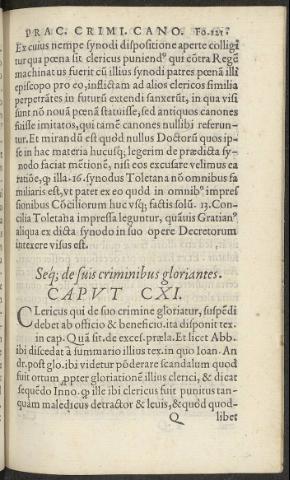 PRAC. CRIMI. CANO. Fo. 121.
Ex cuius nempe synodi dispositione aperte colligi
tur qua pœna sit clericus puniendꝰ qui cõtra Regẽ
machinatus fuerit cũ illius synodi patres pœnã illi
episcopo pro eo, inflictam ad alios clericos similia
perpetrãtes in futurũ extendi sanxerũt, in qua visi
sunt nõ nouã pœnã statuisse, sed antiquos canones
fuisse imitatos, qui tamẽ canones nullibi referun-
tur. Et mirandũ est quòd nullus Doctorũ quos ip-
se in hac materia hucusq; legerim de prædicta sy-
nodo faciat mẽtionẽ, nisi eos excusare velimus ea
ratiõe, ꝙ illa. 16. synodus Toletana nõ omnibus fa
miliaris est, vt pater ex eo quòd in omnibꝰ impres
sionibus Cõciliorum huc vsq; factis solũ. 13. Con-
cilia Toletana impressa leguntur, quãuis Gratianꝰ
aliqua ex dicta synodo in suo opere Decretorum
intexere visus est.
Seq; de suis criminibus gloriantes.
CAPVT CXI.
CLericus qui de suo crimine gloriatur, suspẽdi
debet ab officio & beneficio. ita disponit tex.
in cap. Quã sit. de excess. præla. Et licet Abb.
ibi discedat à summario illius tex. in quo Ioan. An
dr. post glo. ibi videtur põderare scandalum quod
fuit ortum ꝓpter gloriationẽ illius clerici, & dicat
sequẽdo Inno. ꝙ ille ibi clericus fuit punitus tan-
quàm maledicus detractor & leuis, & quòd quod-
Q libet